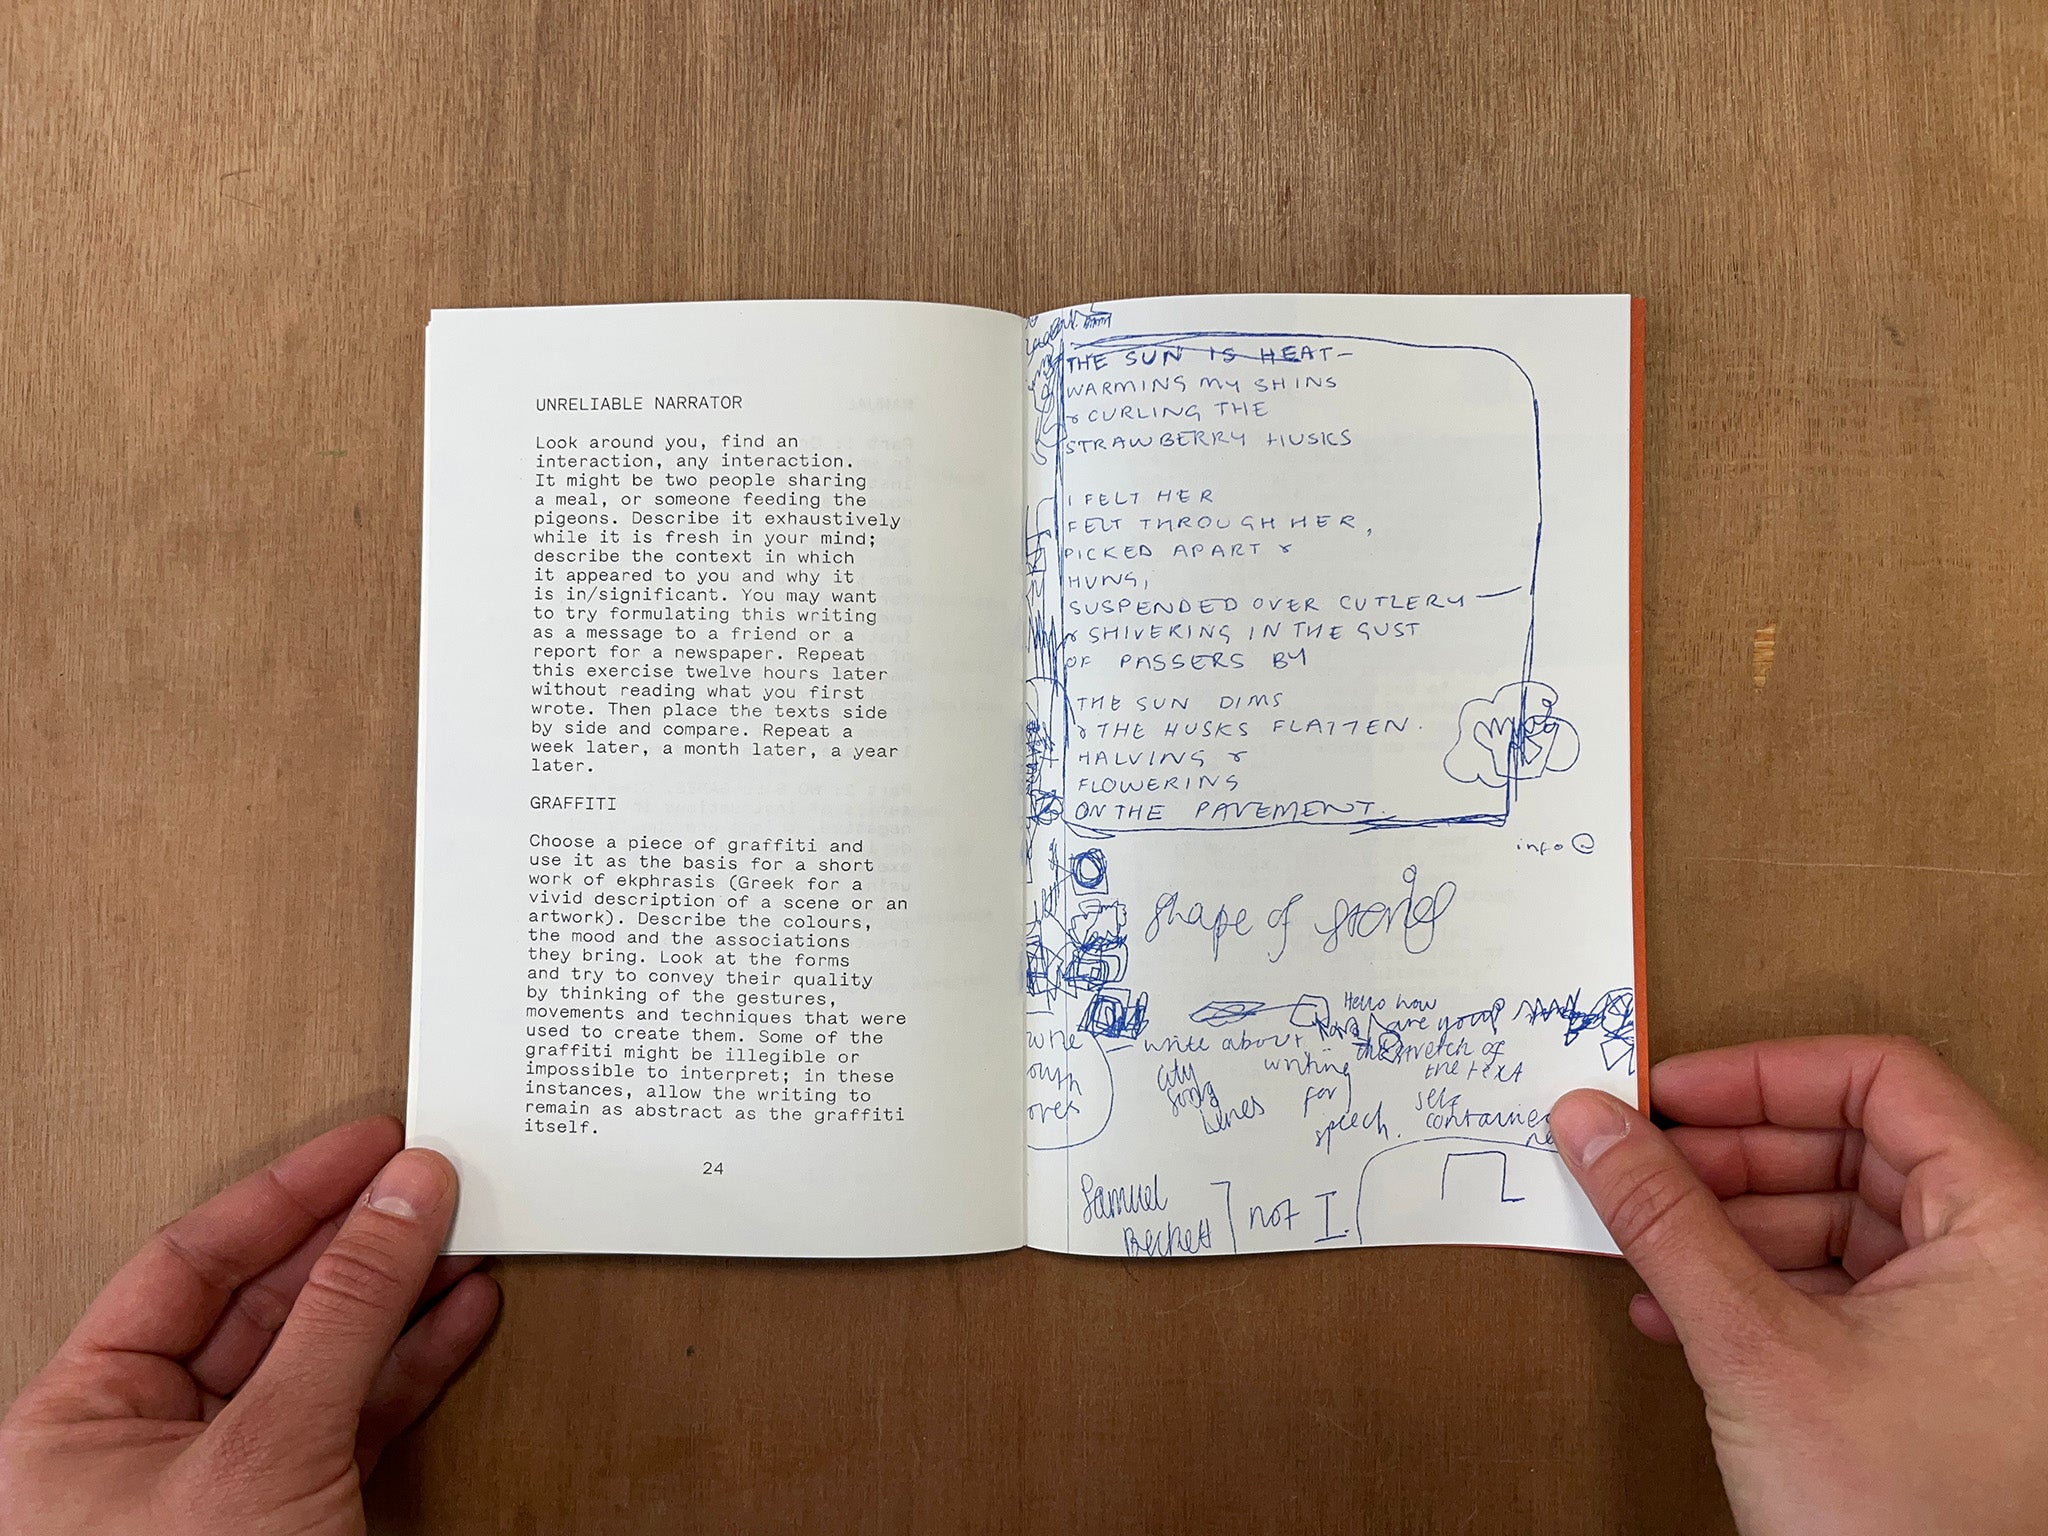 UNRELIABLE NARRATOR
Look around you, find an
interaction, any interaction.
It might be two people sharing
a meal, or someone feeding the
pigeons. Describe it exhaustively
while it is fresh in your mind;
describe the context in which
it appeared to you and why it
is in/significant. You may want
to try formulating this writing
as a message to a friend or a
report for a newspaper. Repeat
this exercise twelve hours later
without reading what you first
wrote. Then place the texts side
by side and compare. Repeat a
week later, a month later, a year
later.
GRAFFITI
Choose a piece of graffiti and
use it as the basis for a short
work of ekphrasis (Greek for a
vivid description of a scene or an
artwork). Describe the colours,
the mood and the associations
they bring. Look at the forms
and try to convey their quality
by thinking of the gestures,
movements and techniques that were
used to create them. Some of the
graffiti might be illegible or
impossible to interpret; in these
instances, allow the writing to
remain as abstract as the graffiti
itself.
24
THE SUN IS HEAT—
WARMING MY SHINS
& CURLING THE
STRAWBERRY HUSKS
I FELT HER
FELT THROUGH HER,
PICKED APART &
HUNG,
SUSPENDED OVER CUTLERY —
& SHIVERING IN THE GUST
OF PASSERS BY
THE SUN DIMS
& THE HUSKS FLATTEN.
HALVING &
FLOWERING
ON THE PAVEMENT.
info@
shape of stories
Hello how
are you?
— write about
writing
for
speech.
the stretch of
the text
city
song
lines
self
contained
Samuel
Beckett
not I.